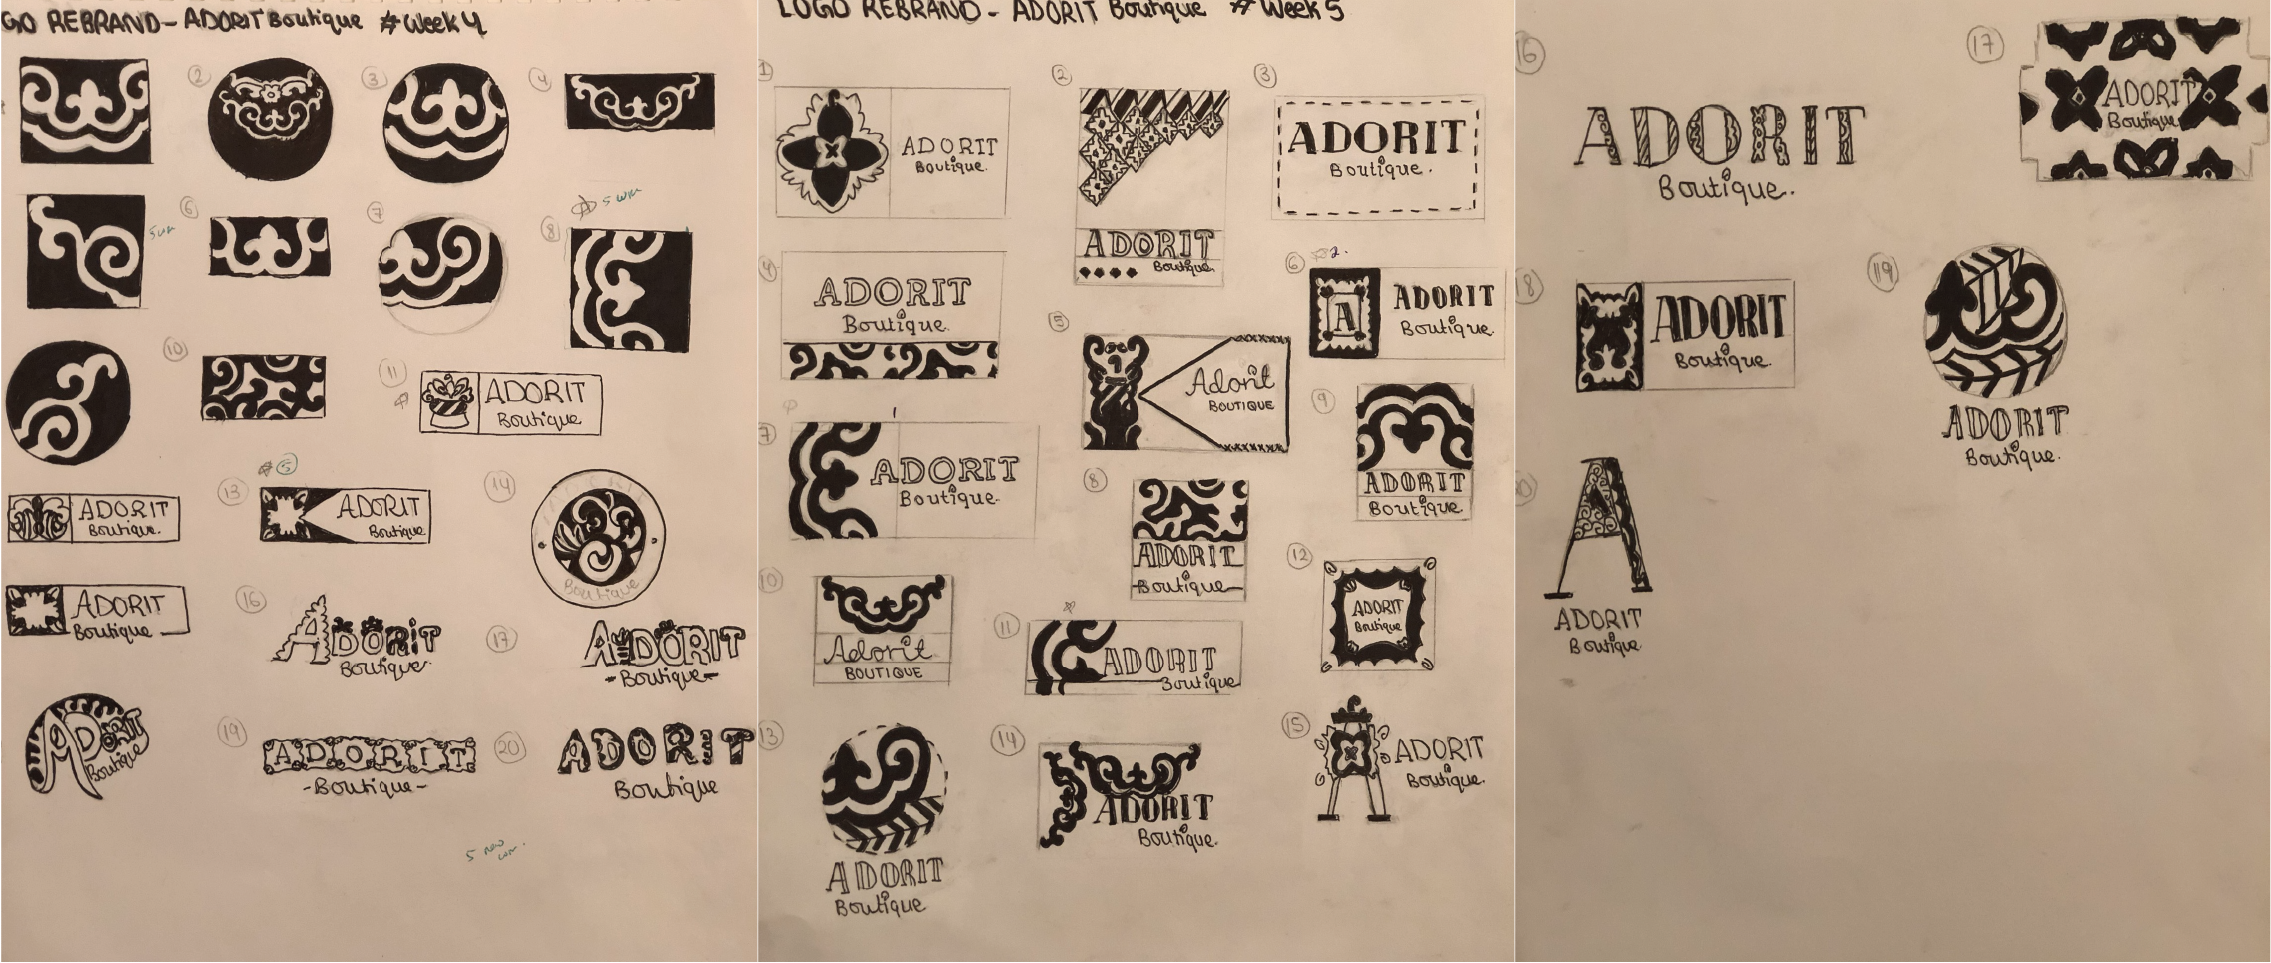 GO REBRAND - ADORIT Boutique #Week 4
2
3
4
6
7
5 wk
8
10
11
ADORIT
Boutique
ADORIT
Boutique.
5
13
ADORIT
Boutique
14
Boutique
ADORIT
Boutique
16
ADORIT
Boutique
17
ADORIT
-Boutique-
ADORIT
Boutique
19
ADORIT
-Boutique-
20
ADORIT
Boutique
5 new
LOGO REBRAND - ADORIT Boutique #Week 5
1
ADORIT
Boutique.
2
ADORIT
Boutique.
3
ADORIT
Boutique.
4
ADORIT
Boutique.
5
Adorit
BOUTIQUE
6
2.
A
ADORIT
Boutique.
7
ADORIT
Boutique.
8
ADORIT
-Boutique-
9
ADORIT
Boutique.
10
Adorit
BOUTIQUE
11
ADORIT
Boutique
12
ADORIT
Boutique
13
ADORIT
Boutique
14
ADORIT
Boutique.
15
ADORIT
Boutique.
16
ADORIT
Boutique.
17
ADORIT
Boutique
18
ADORIT
Boutique.
19
ADORIT
Boutique.
A
ADORIT
Boutique.